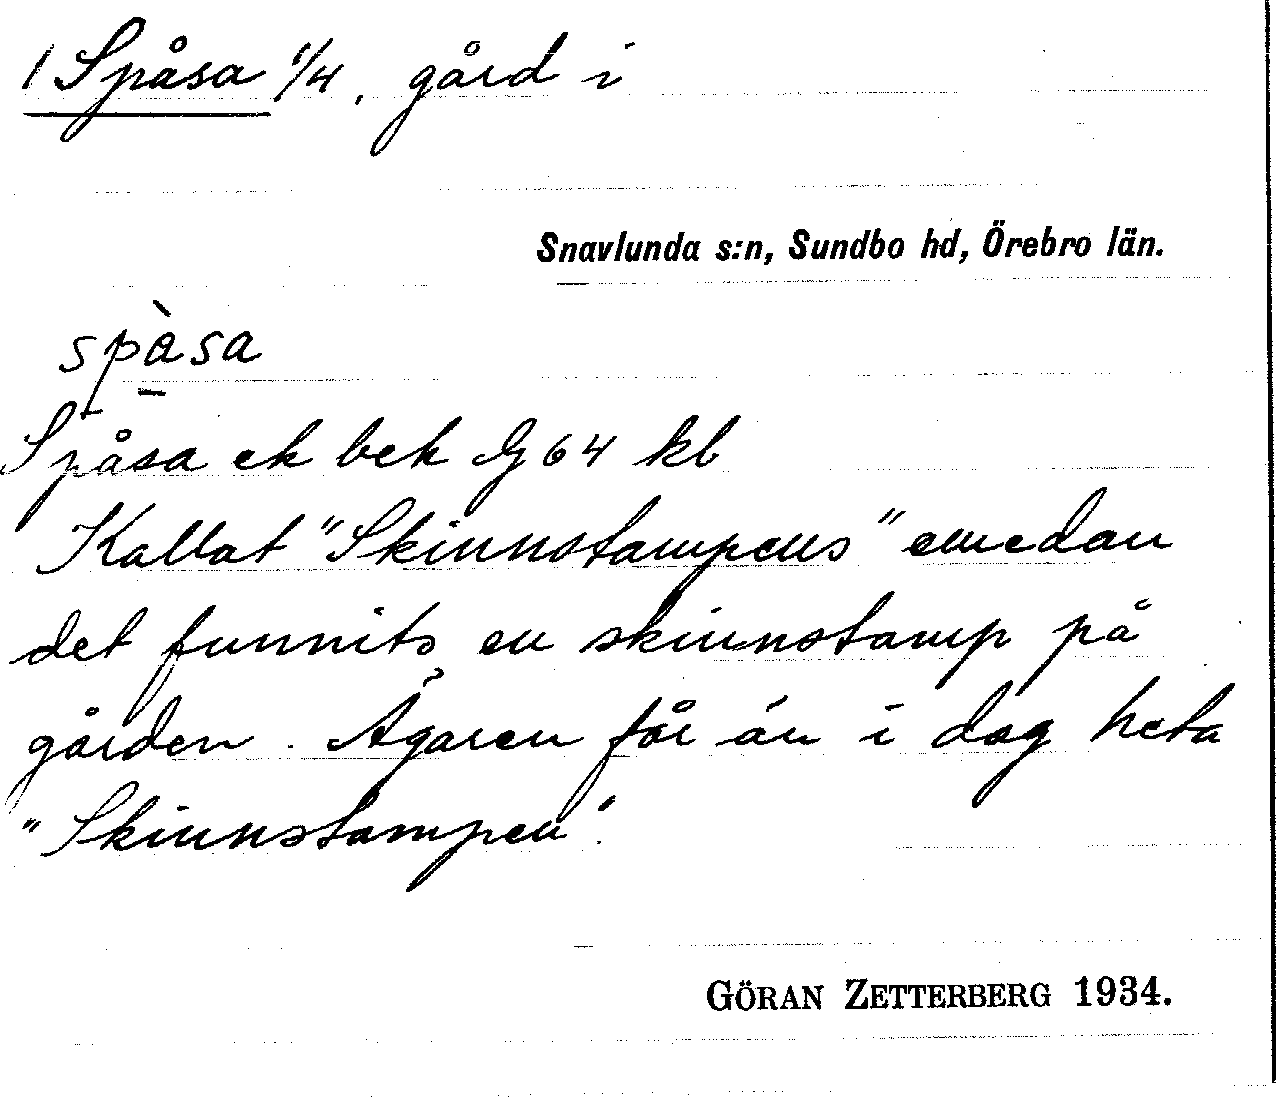 1 Spåsa 1/4, gård i
Snavlunda s:n, Sundbo hd, Örebro län.
spàsa
Spåsa ek bek G 64 kb
Kallat "Skinnstampens" emedan
det funnits en skinnstamp på
gården. Ägaren får än i dag heta
"Skinnstampen".
GÖRAN ZETTERBERG 1934.